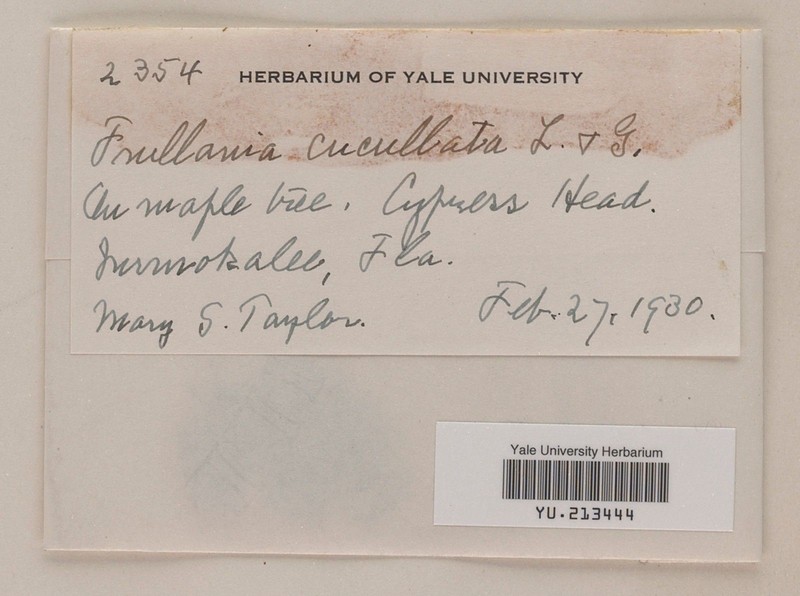 2354 HERBARIUM OF YALE UNIVERSITY
Frullania cucullata L. & G.
On maple tree. Cypress Head.
Immokalee, Fla.
Mary S. Taylor. Feb. 27, 1930.
Yale University Herbarium
YU.213444